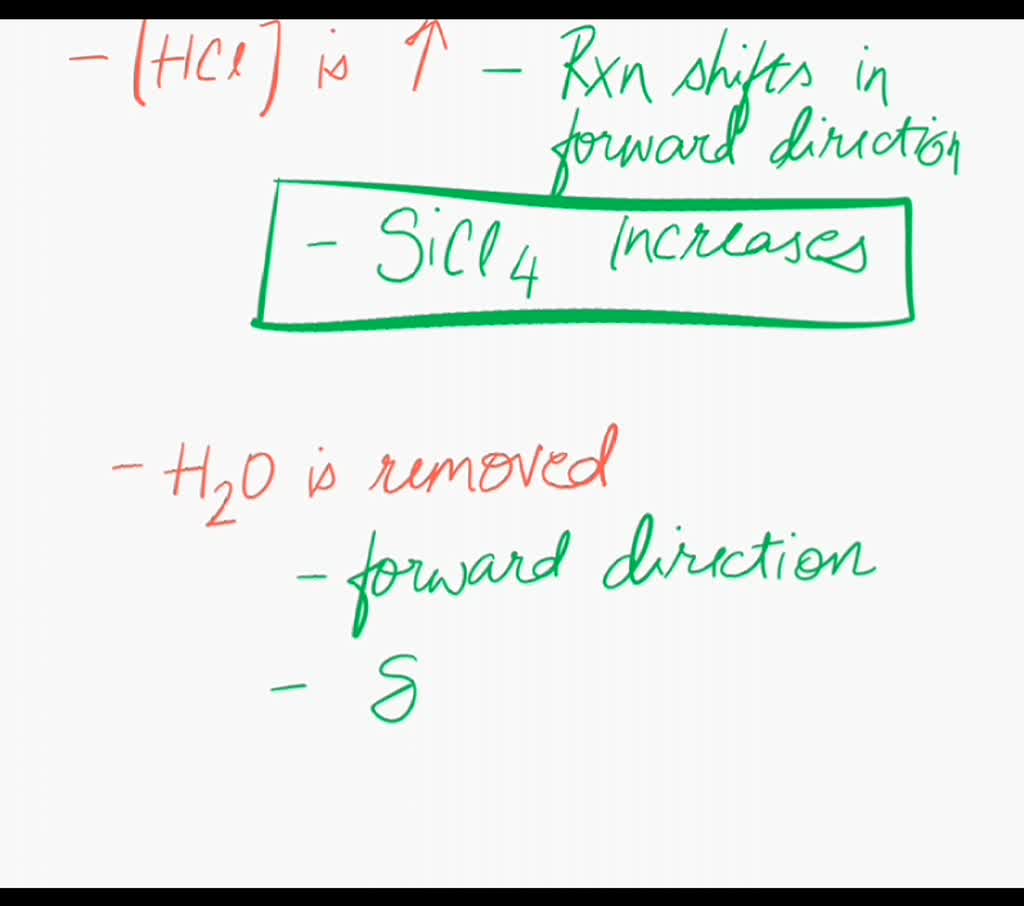 - [HCl] is ↑ - Rxn shifts in
forward direction
- SiCl4 increases
- H2O is removed
- forward direction
- S